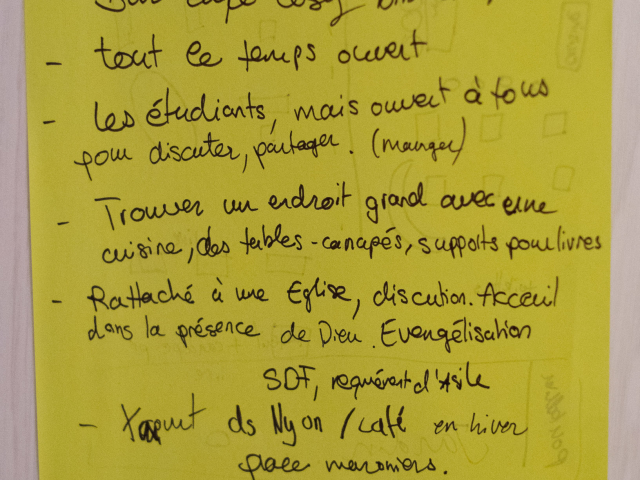 - tout le temps ouvert
- Les étudiants, mais ouvert à tous
pour discuter, partager. (manger)
- Trouver un endroit grand avec une
cuisine, des tables - canapés, supports pour livres
- Rattaché à une Eglise, discution. Acceuil
dans la présence de Dieu. Evangélisation
SDF, requérant d'Asile
- ds Nyon / café en hiver
place maroniers.